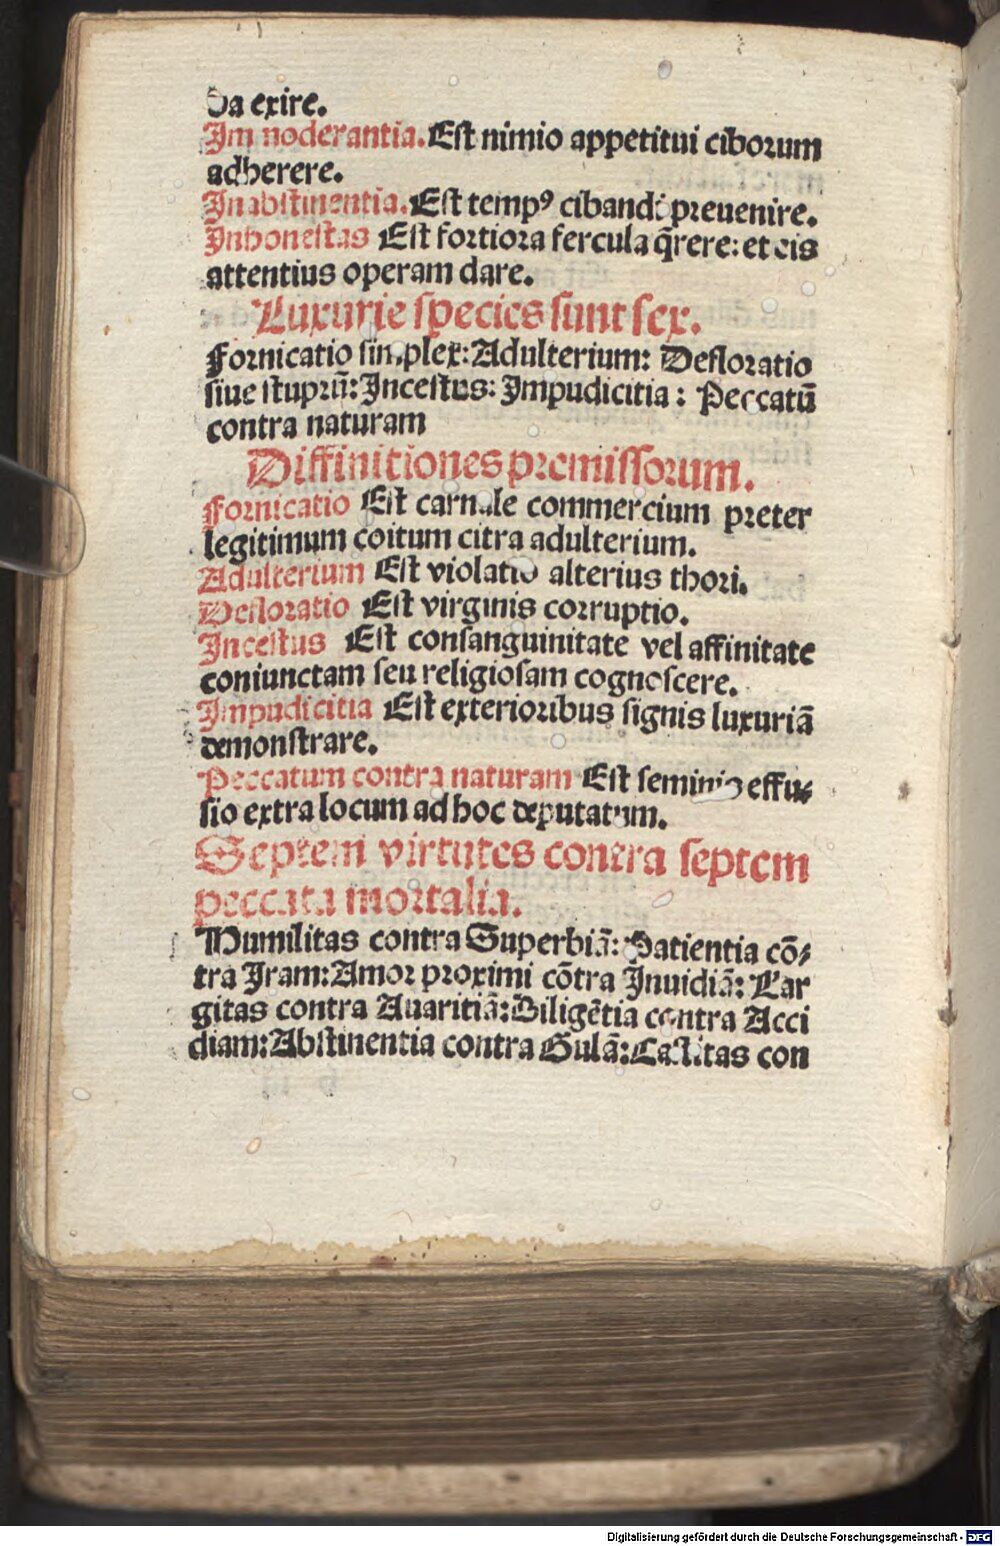 da exire.
Im noderantia. Est nimio appetitui ciborum
adherere.
Inabstinentia. Est tempꝰ cibandi preuenire.
Inhonestas Est fortiora fercula q̄rere: et eis
attentius operam dare.
Luxurie species sunt sex.
Fornicatio simplex: Adulterium: Defloratio
siue stuprū: Incestus: Impudicitia: Peccatū
contra naturam
Diffinitiones premissorum.
Fornicatio Est carnale commercium preter
legitimum coitum citra adulterium.
Adulterium Est violatio alterius thori.
Defloratio Est virginis corruptio.
Incestus Est consanguinitate vel affinitate
coniunctam seu religiosam cognoscere.
Impudicitia Est exterioribus signis luxuriā
demonstrare.
Peccatum contra naturam Est seminis effu⸗
sio extra locum ad hoc deputatum.
Septem virtutes contra septem
peccata mortalia.
Humilitas contra Superbiā: Patientia cō⸗
tra Iram: Amor proximi cōtra Inuidiā: Lar
gitas contra Auaritiā: Diligētia contra Acci
diam: Abstinentia contra Gulā: Castitas con
Digitalisierung gefördert durch die Deutsche Forschungsgemeinschaft - DFG